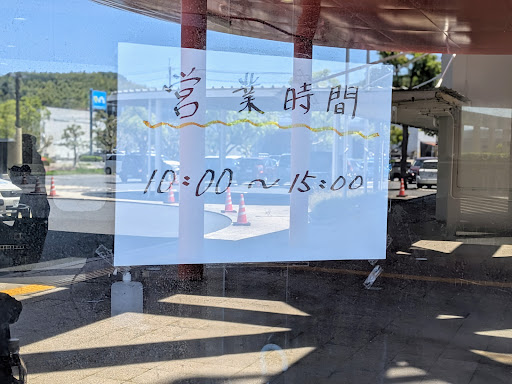 営業時間
10:00〜15:00